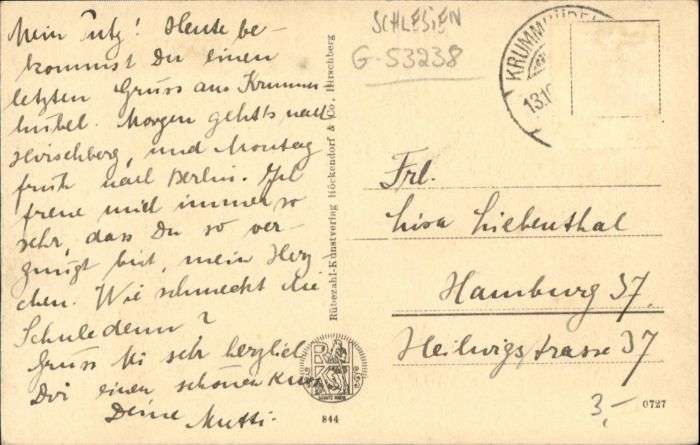 Mein Putz! Heute be-
kommst Du einen
letzten Gruss aus Krumm-
hübel. Morgen geht's nach
Hirschberg, und Montag
früh nach Berlin. Ich
freue mich immer so
sehr, dass Du so ver-
gnügt bist, mein Herz-
chen. Wie schmeckt die
Schule denn?
Grüss Mi sehr herzlich
Dir einen schönen Kuss
Deine Mutti.
Rübezahl-Kunstverlag Höckendorf & Co., Hirschberg
844
SCHLESIEN
G-53238
KRUMMHÜBEL
13.10
Frl.
Lisa Liebenthal
Hamburg 37.
Heilwigstrasse 37
3,-
0727